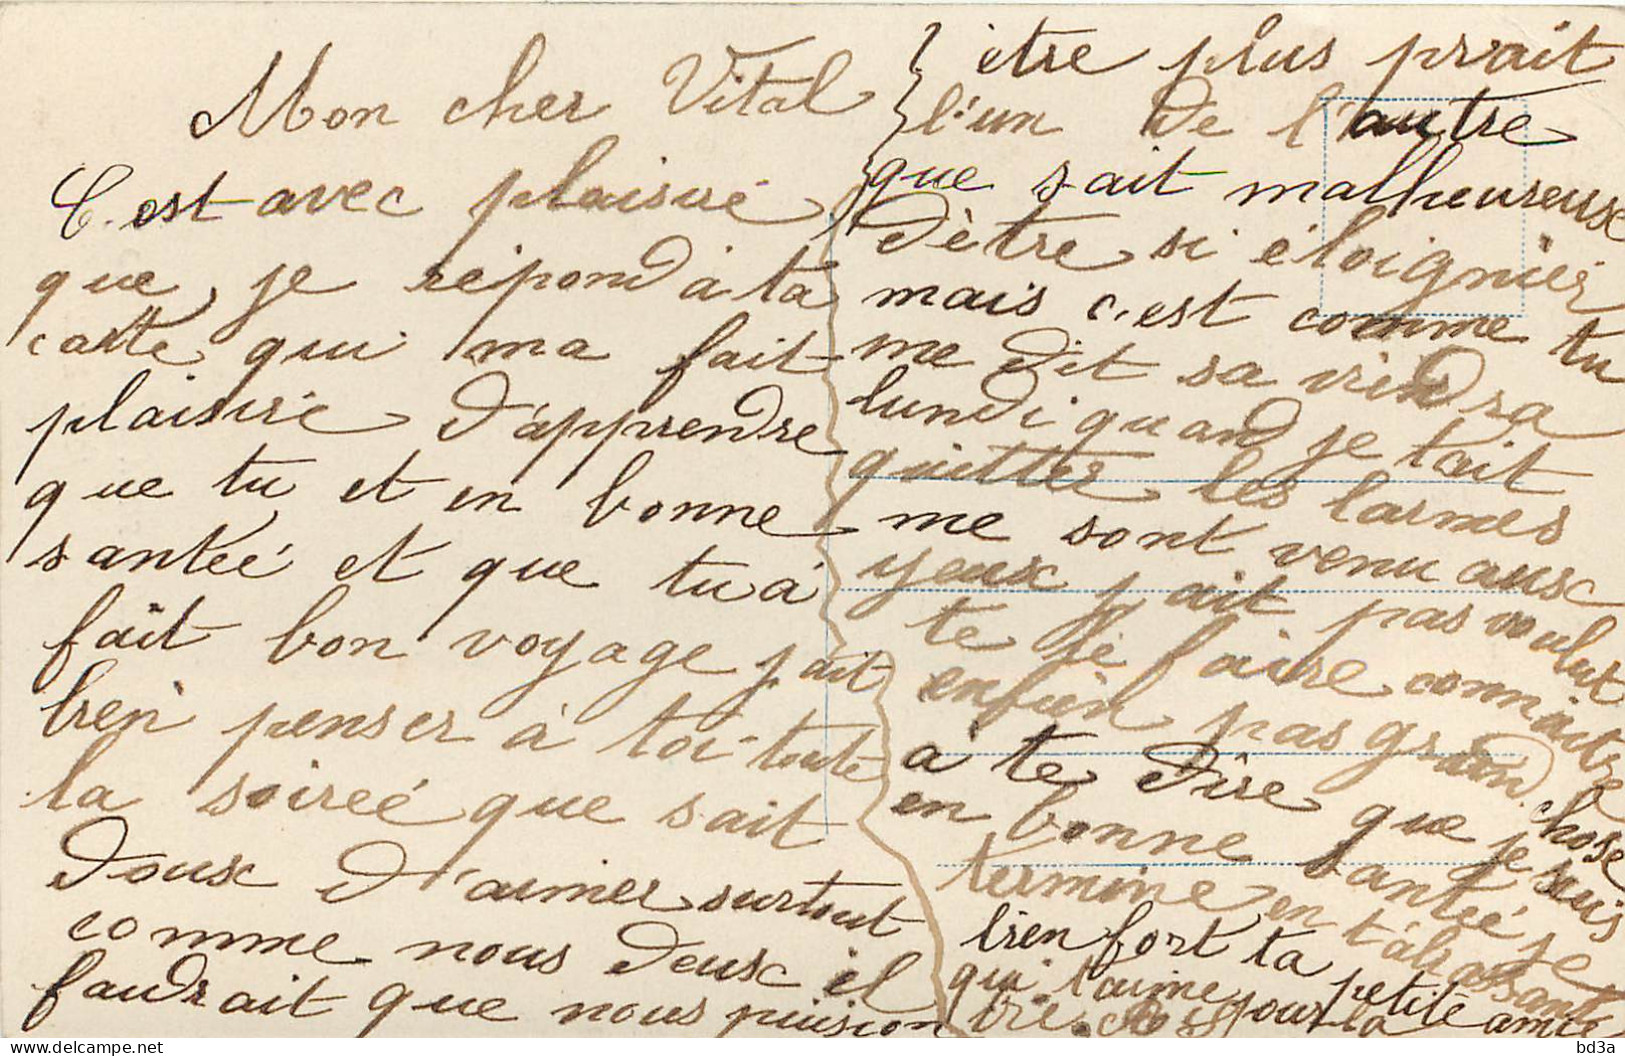 Mon cher Vital
C'est avec plaisire
que je répond à ta
carte qui ma fait
plaisire d'apprendre
que tu et en bonne
santée et que tu à
fait bon voyage j'ait
bien penser à toi toute
la soireé que sait
doux d'aimer surtout
comme nous deux il
faudrait que nous puision
être plus prait
l'un de l'autre
que sait malheureuse
d'être si éloignier
mais c'est comme tu
me dit sa viendra
lundi quand je tait
quitter les larmes
me sont venu aux
yeux j'ait pas voulut
te le faire connaitre
enfien pas grand chose
à te dire que je suis
en bonne santée je
termine en t'abrassant
bien fort ta petite amie
qui t'aime pour la
vie.
bd3a